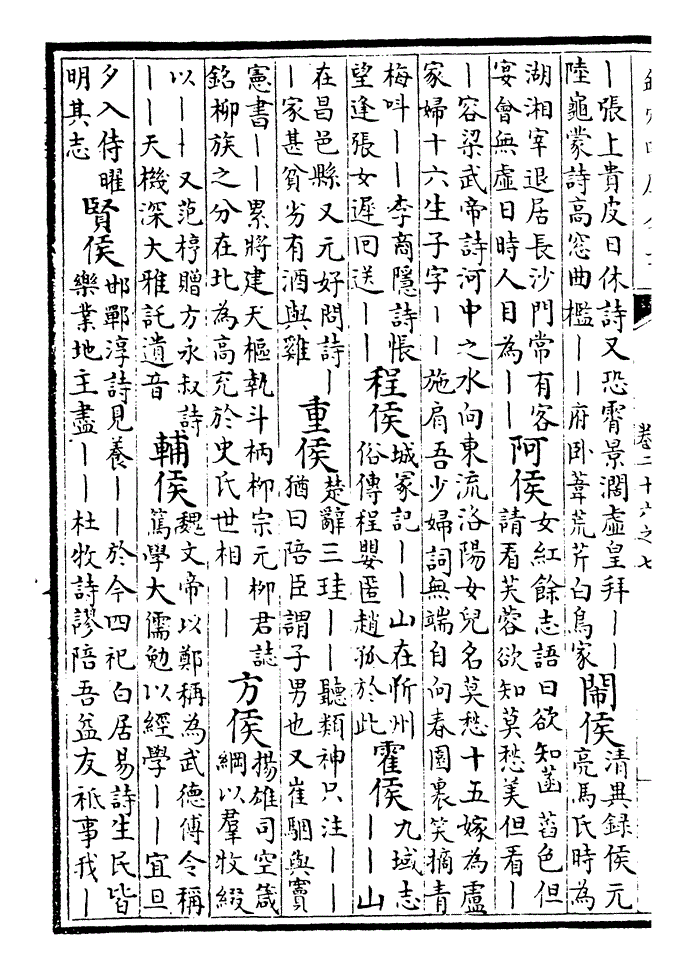 卷二十六之七
｜張上貴皮日休詩又恐霄景濶虛皇拜｜｜
陸龜蒙詩高窓曲檻｜｜府卧葦荒芹白鳥家
鬧侯
清異録侯元
亮馬氏時為
湖湘宰退居長沙門常有客
宴會無虛日時人目為｜｜
阿侯
女紅餘志語曰欲知菡萏色但
請看芙蓉欲知莫愁美但看｜
｜容梁武帝詩河中之水向東流洛陽女兒名莫愁十五嫁為盧
家婦十六生子字｜｜施肩吾少婦詞無端自向春園裏笑摘青
梅呌｜｜李商隱詩悵
望逢張女遲回送｜｜
程侯
城冢記｜｜山在忻州
俗傳程嬰匿趙孤於此
霍侯
九域志
｜｜山
在昌邑縣又元好問詩｜
｜家甚貧劣有酒與雞
重侯
楚辭三珪｜｜聽類神只注｜｜
猶曰陪臣謂子男也又崔駰與竇
憲書｜｜累將建天樞執斗柄柳宗元柳君誌
銘柳族之分在北為高充於史氏世相｜｜
方侯
揚雄司空箴
綱以羣牧綴
以｜｜又范梈贈方永叔詩
｜｜天機深大雅託遺音
輔侯
魏文帝以鄭稱為武德傅令稱
篤學大儒勉以經學｜｜宜旦
夕入侍曜
明其志
賢侯
邯鄲淳詩見養｜｜於今四祀白居易詩生民皆
樂業地主盡｜｜杜牧詩謬陪吾益友祗事我｜